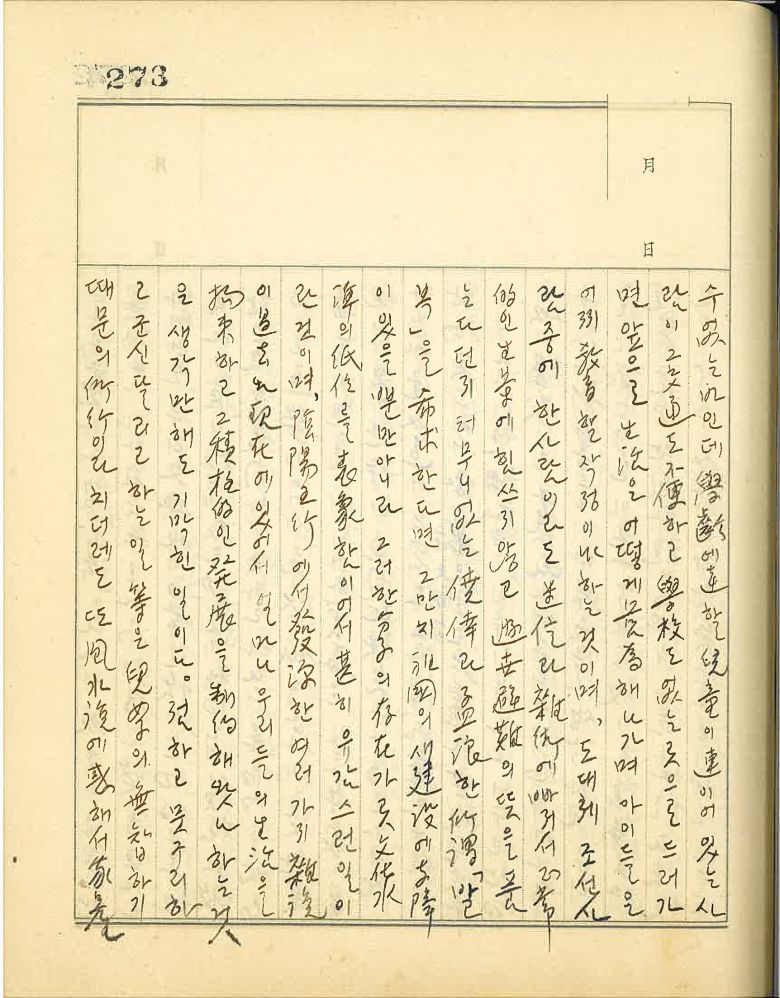 273
月
日
수 없는 バ인데 學齡에 達할 兒童이 連이어 있는 사
람이 交通도 不便하고 學校도 없는 곳으로 드러가
면 앞으로 生活을 어떻게 하여 나가며 아이들을
어찌 敎育할 작정이냐 하는 것이며, 도대체 조선사
람 중에 한 사람이라도 迷信과 雜術에 빠져서 正常
的인 生業에 힘쓰지 않고 避世避難의 뜻을 품
는다던지 터무니없는 僥倖과 孟浪한 所謂「발
복」을 希求한다면 그만치 祖國의 새 建設에 支障
이 있을 뿐만 아니라 그러한 分子의 存在가 곳 文化水
準의 低位를 表象함이어서 甚히 유감스런 일이
란 것이며, 陰陽五行에서 發源한 여러 가지 雜說
이 過去 와 現在에 있어서 얼마나 우리들의 生活을
拘束하고 그 積極的인 發展을 制約해 왔나 하는 것
을 생각만 해도 기막힌 일이다. 점하고 푸닥거리하
고 하는 일 等은 兒女의 無智하기
때문의 所行이라 치더래도 또 風水說에 惑해서 家產